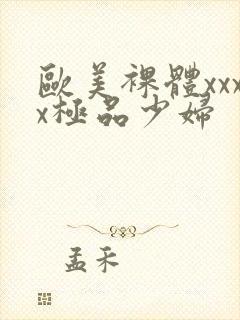 歐美裸體xxx
x極品少婦
孟禾